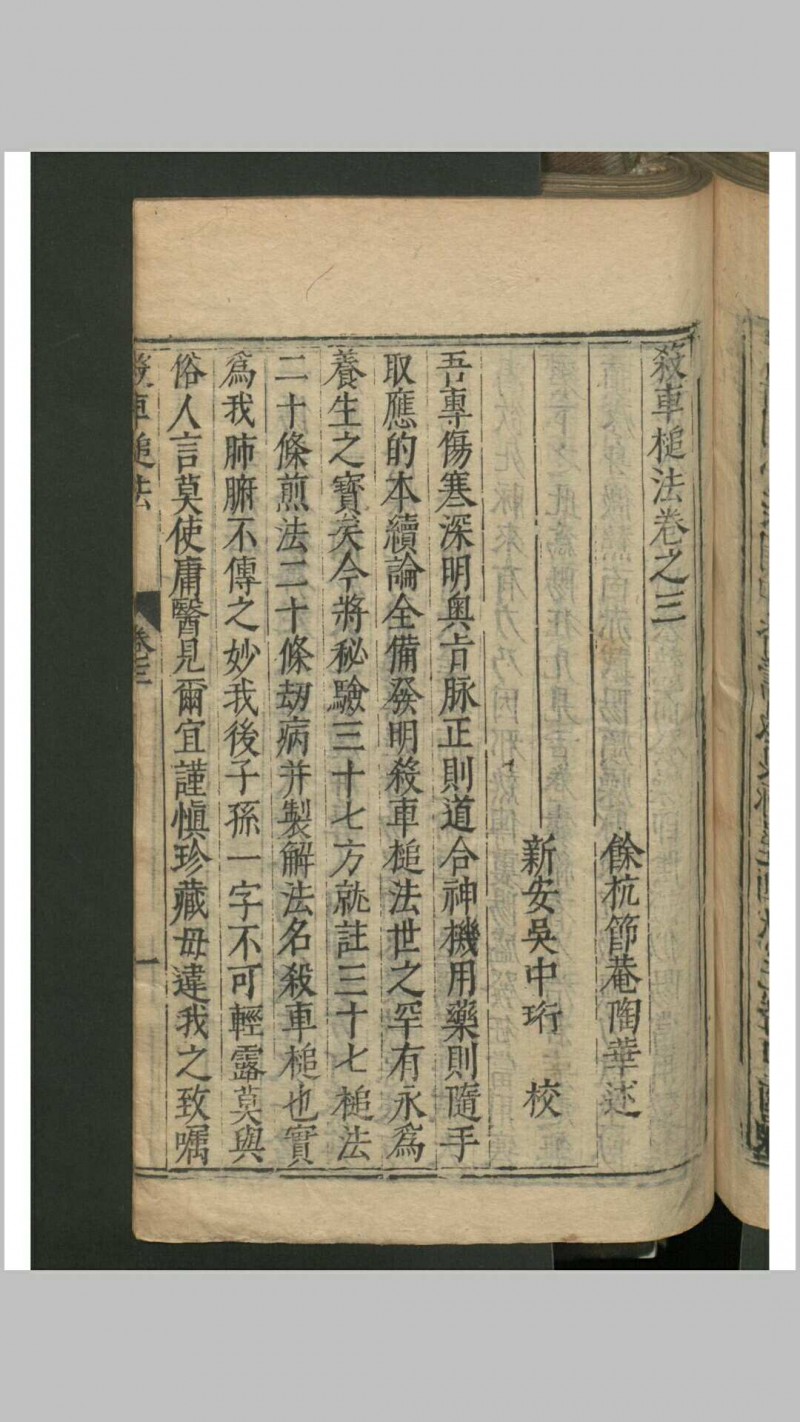 殺車槌法卷之三
餘杭節菴陶華述
新安吳中珩 校
吾專傷寒深明奥㫖脉正則道合神機用藥則隨手
取應的本續論全備發明殺車槌法世之罕有永爲
養生之寶矣今將秘驗三十七方就註三十七槌法
二十條煎法二十條刼病并製解法名殺車槌也實
爲我肺腑不傳之妙我後子孫一字不可輕露莫與
俗人言莫使庸醫見爾宜謹慎珍藏毋違我之致囑
殺車槌法 卷三 一